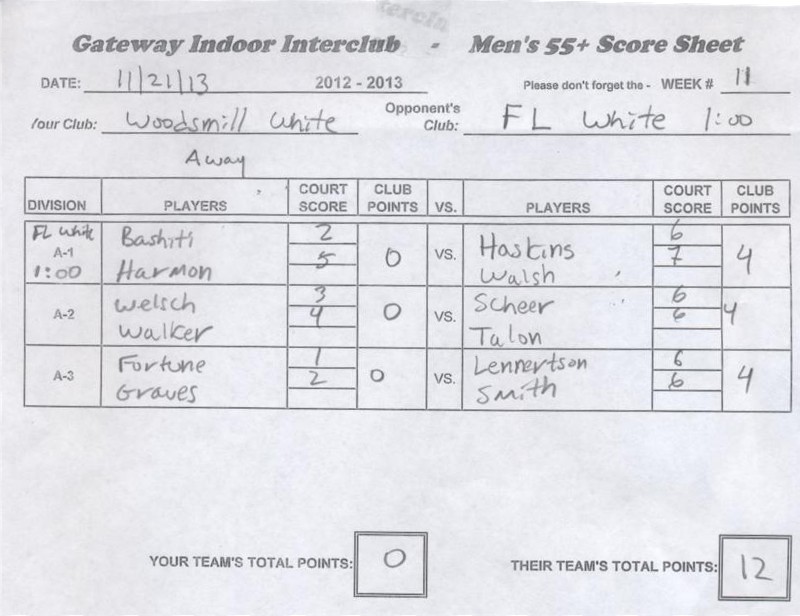 Gateway Indoor Interclub - Men's 55+ Score Sheet
DATE: 11/21/13 2012 - 2013 Please don't forget the - WEEK # 11
Your Club: Woodsmill White Opponent's Club: FL White 1:00
Away
DIVISION PLAYERS COURT SCORE CLUB POINTS VS. PLAYERS COURT SCORE CLUB POINTS
FL White A-1 1:00 Bashiti 2 Harmon 5 0 VS. Hoskins 6 Walsh 7 4
A-2 Welsch 3 Walker 4 0 VS. Scheer 6 Talon 6 4
A-3 Fortune 1 Graves 2 0 VS. Lennertson 6 Smith 6 4
YOUR TEAM'S TOTAL POINTS: 0 THEIR TEAM'S TOTAL POINTS: 12